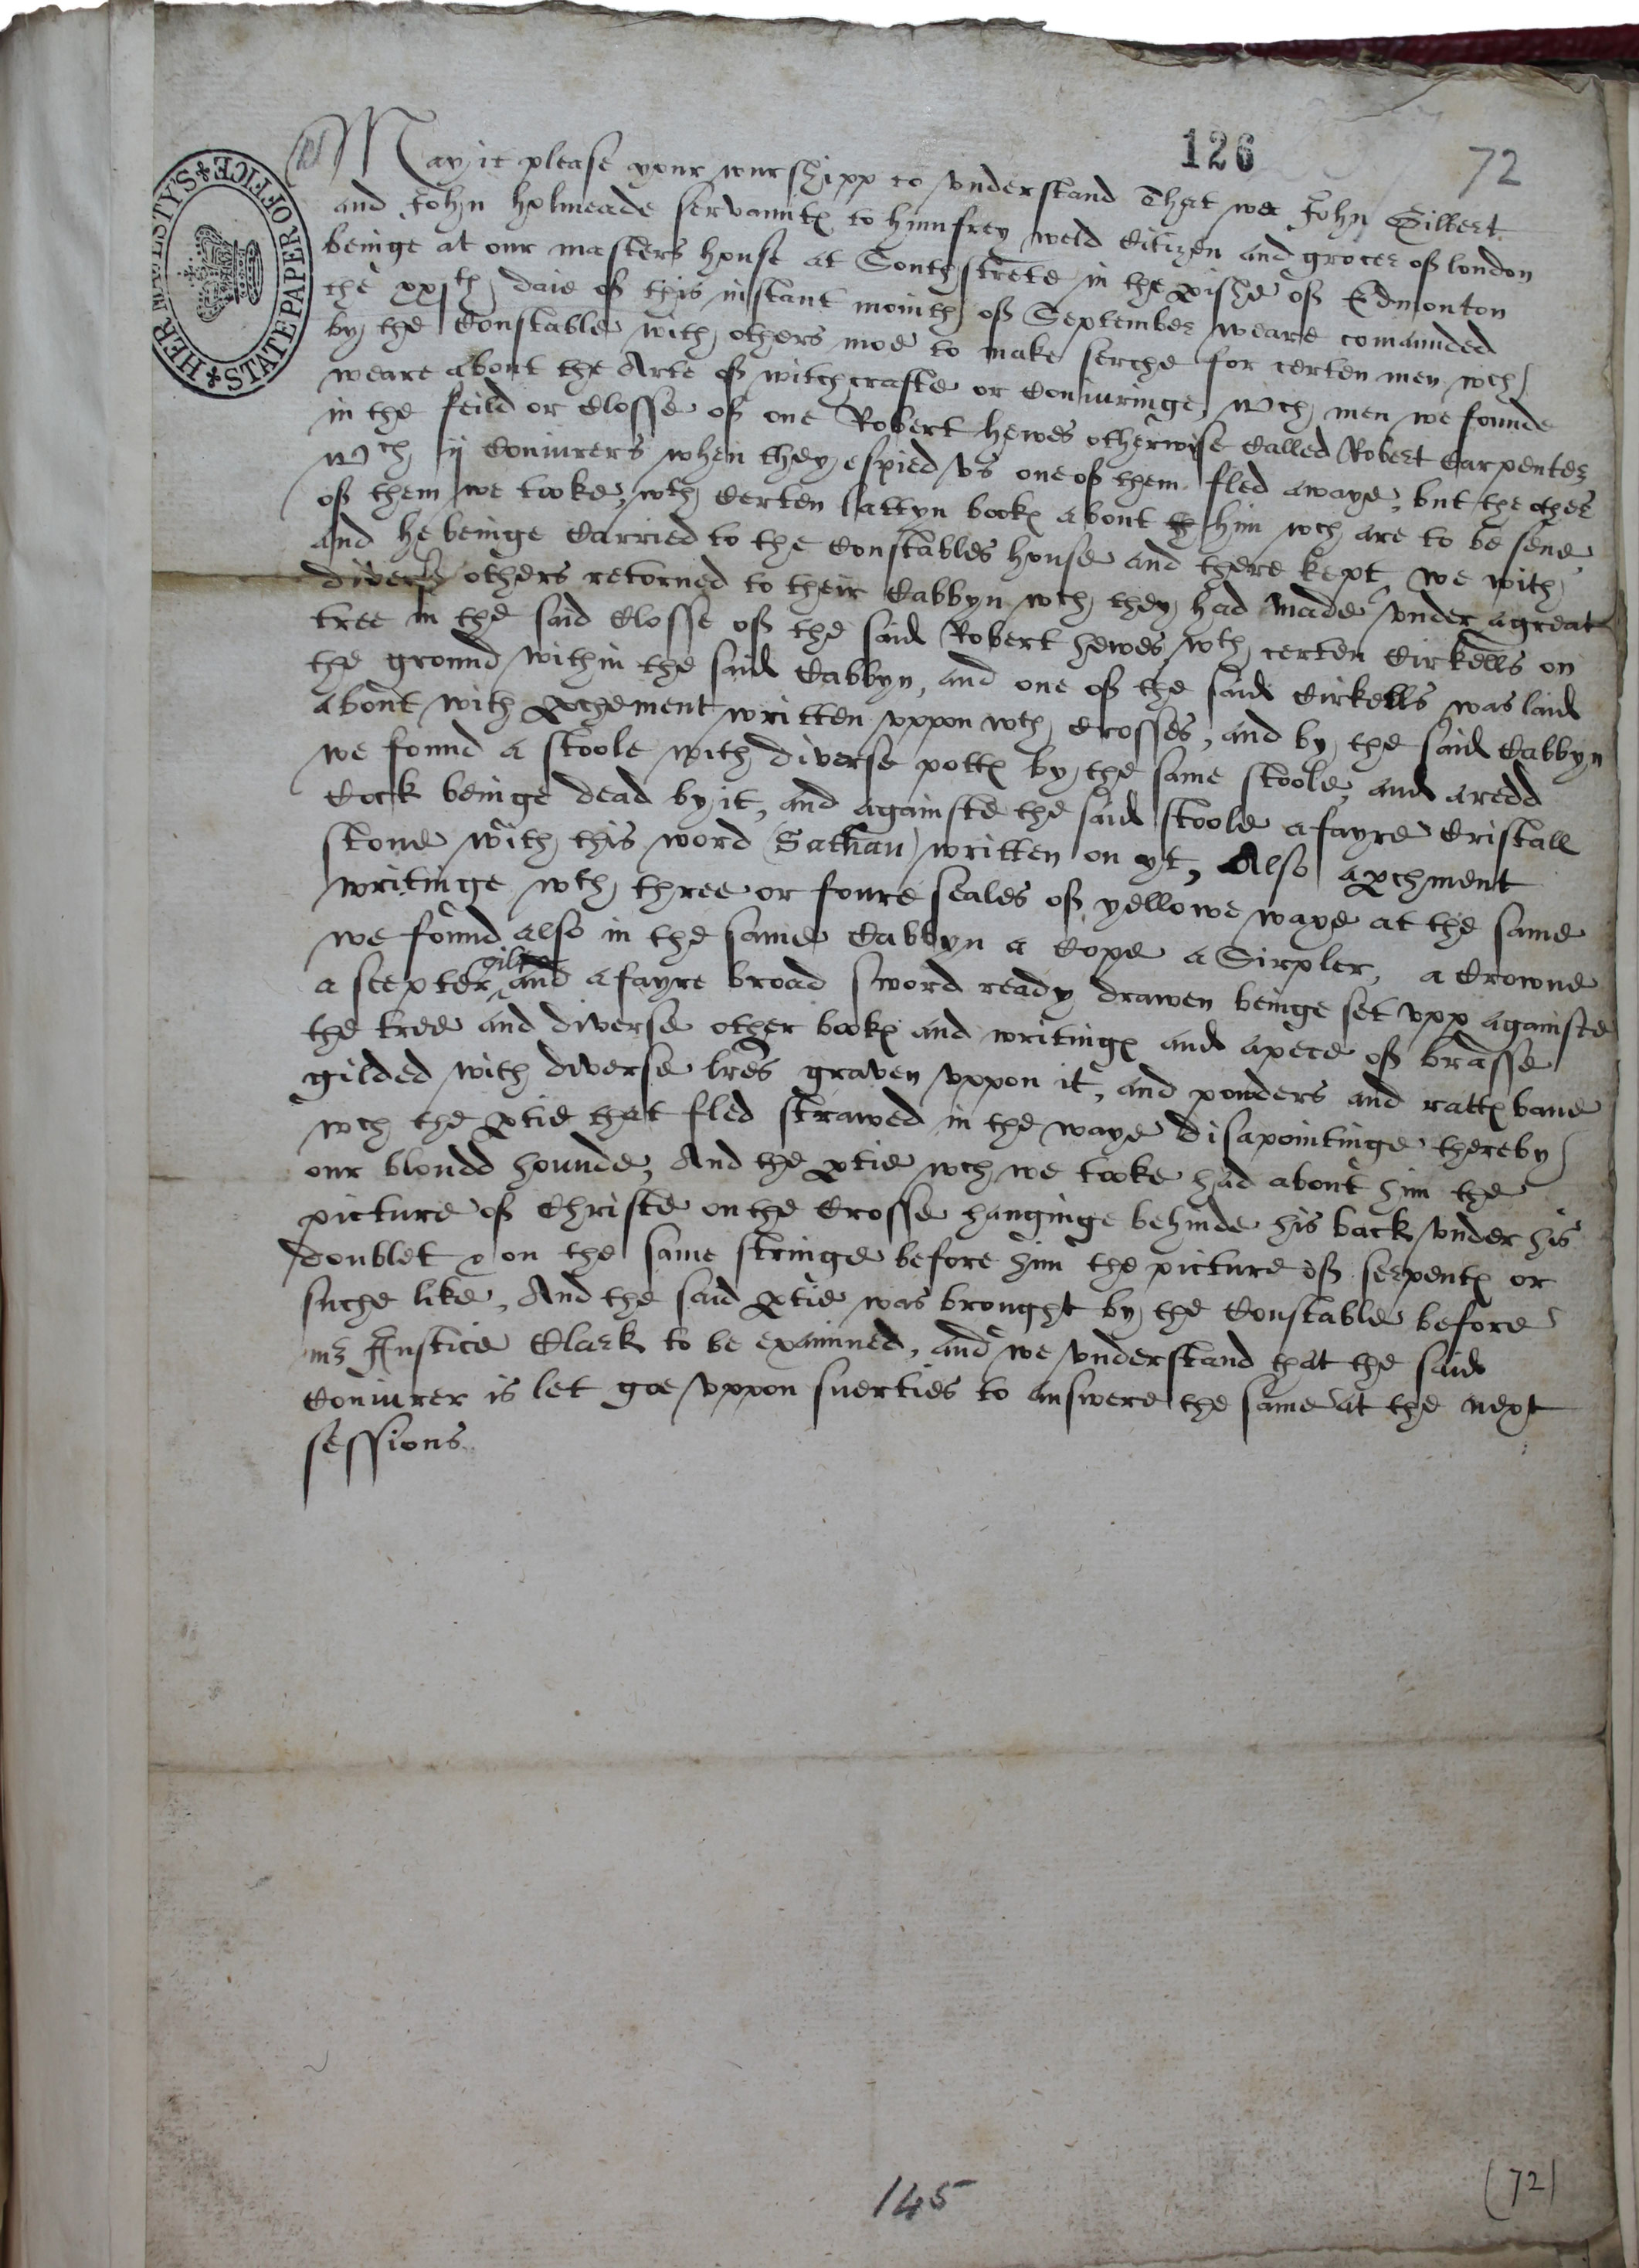 126
72
HER MAJESTY'S STATE PAPER OFFICE
May it please your wurshipp to vnderstand That we John Gilbert
and John Holmeade servauntꝭ to Humfrey weld Citizen and grocer of london
beinge at our masters house at Southstrete in the ꝑishe of Edmonton
the xxjth daie of this instant month of September weare comaunded
by the Constable with others moe to make serche for certen men wch
weare about the Arte of witchcrafte or Coniuringe, wch men we founde
in the feild or Closse of one Robert Hewes otherwise Called Robert Carpenter
wch ij Coniurers when they espied vs one of them fled awaye, but the other
of them we tooke, wth Certen lattyn bookꝭ about him wch are to be sene
and he beinge Carried to the Constables house and there kept, we with
divers others retorned to their Cabbyn wch they had made vnder a great
tree in the said Closse of the said Robert Hewes wth certen Cirkells on
the ground within the said Cabbyn, and one of the said Cirkells was laid
about with ꝑchement written vppon wth Crosses, and by the said Cabbyn
we found a stoole with diverse pottꝭ by the same stoole, and a redd
Cock beinge dead by it, and againste the said stoole a fayre Cristall
stone with this word (Sathan) written on yt, Also a ꝑchment
writinge wth three or foure seales of yellowe waxe at the same
we found also in the same Cabbyn a Cope a Sirpler, a Crowne
a scepter gilte and a fayre broad sword ready drawen beinge set vpp againste
the tree and diverse other bookꝭ and writingꝭ and a pece of brasse
gilded with diverse lres graven vppon it, and pouders and rattꝭ bane
wch the ꝑtie that fled strawed in the waye disapointinge thereby
our bloudd hounde, And the ꝑtie wch we tooke had about him the
picture of Christe on the Crosse hanginge behinde his back vnder his
doublet & on the same stringe before him the picture of serpentꝭ or
suche like, And the said ꝑtie was brought by the Constable before
mr Justice Clark to be examined, and we vnderstand that the said
Coniurer is let goe vppon suerties to answere the same at the next
sessions.
145
(72)